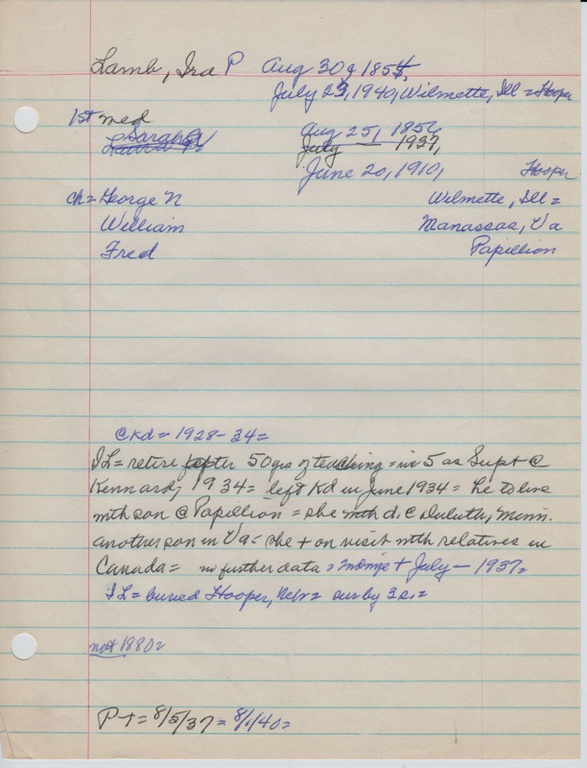 Lamb, Ira P Aug 30, 1854,
July 23, 1940, Wilmette, Ill = Hooper
1st med
Sarah Aug 25, 1856,
July — 1937,
June 20, 1910, Hooper
ch = George N Wilmette, Ill =
William Manassas, Va
Fred Papillion
@ Kd = 1928-34 =
IL = retire after 50 yrs of teaching = in 5 as Supt @
Kennard, 1934 = left Kd in June 1934 = he to live
with son @ Papillion = she with d. @ Duluth, Minn.
another son in Va = she + on visit with relatives in
Canada = no further data = + July — 1937 =
IL = buried Hooper, Nebr = sur by 3 s. =
not 1880 =
P + = 8/5/37 = 8/1/40 =